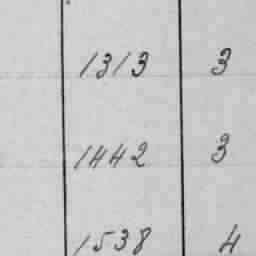 1313 3
1442 3
1538 4